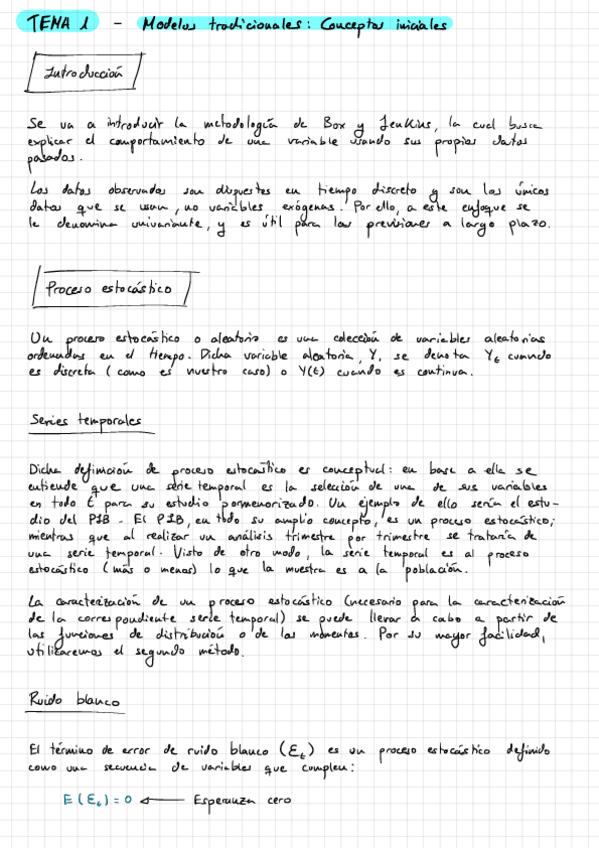 TEMA 1 - Modelos tradicionales: Conceptos iniciales
Introducción
Se va a introducir la metodología de Box y Jenkins, la cual busca
explicar el comportamiento de una variable usando sus propios datos
pasados.
Los datos observados son dispuestos en tiempo discreto y son los únicos
datos que se usan, no variables exógenas. Por ello, a este enfoque se
le denomina univariante, y es útil para las previsiones a largo plazo.
Proceso estocástico
Un proceso estocástico o aleatorio es una colección de variables aleatorias
ordenadas en el tiempo. Dicha variable aleatoria, Y, se denota Yt cuando
es discreta (como es nuestro caso) o Y(t) cuando es continua.
Series temporales
Dicha definición de proceso estocástico es conceptual: en base a ella se
entiende que una serie temporal es la selección de una de sus variables
en todo t para su estudio pormenorizado. Un ejemplo de ello sería el estu-
dio del PIB. El PIB, en todo su amplio concepto, es un proceso estocástico;
mientras que al realizar un análisis trimestre por trimestre se trataría de
una serie temporal. Visto de otro modo, la serie temporal es al proceso
estocástico (más o menos) lo que la muestra es a la población.
La caracterización de un proceso estocástico (necesario para la caracterización
de la correspondiente serie temporal) se puede llevar a cabo a partir de
las funciones de distribución o de los momentos. Por su mayor facilidad,
utilizaremos el segundo método.
Ruido blanco
El término de error de ruido blanco (Ɛt) es un proceso estocástico definido
como una secuencia de variables que cumplen:
E(Ɛt) = 0 ← Esperanza cero